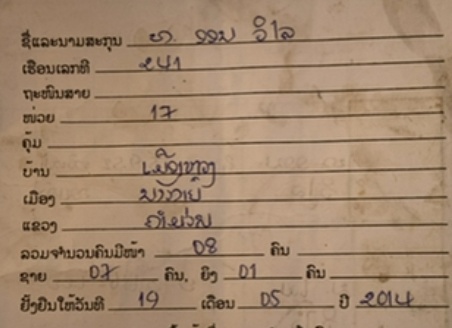 ຊື່ແລະນາມສະກຸນ ທ. ວອນ ວິໄລ
ເຮືອນເລກທີ 241
ຖະໜົນສາຍ
ໜ່ວຍ 17
ຄຸ້ມ
ບ້ານ ເມືອງຫວາ
ເມືອງ
ແຂວງ ຄຳມ່ວນ
ລວມຈຳນວນຄົນມີໜ້າ 08 ຄົນ
ຊາຍ 07 ຄົນ, ຍິງ 01 ຄົນ
ຢັ້ງຢືນໃຫ້ວັນທີ 19 ເດືອນ 05 ປີ 2014